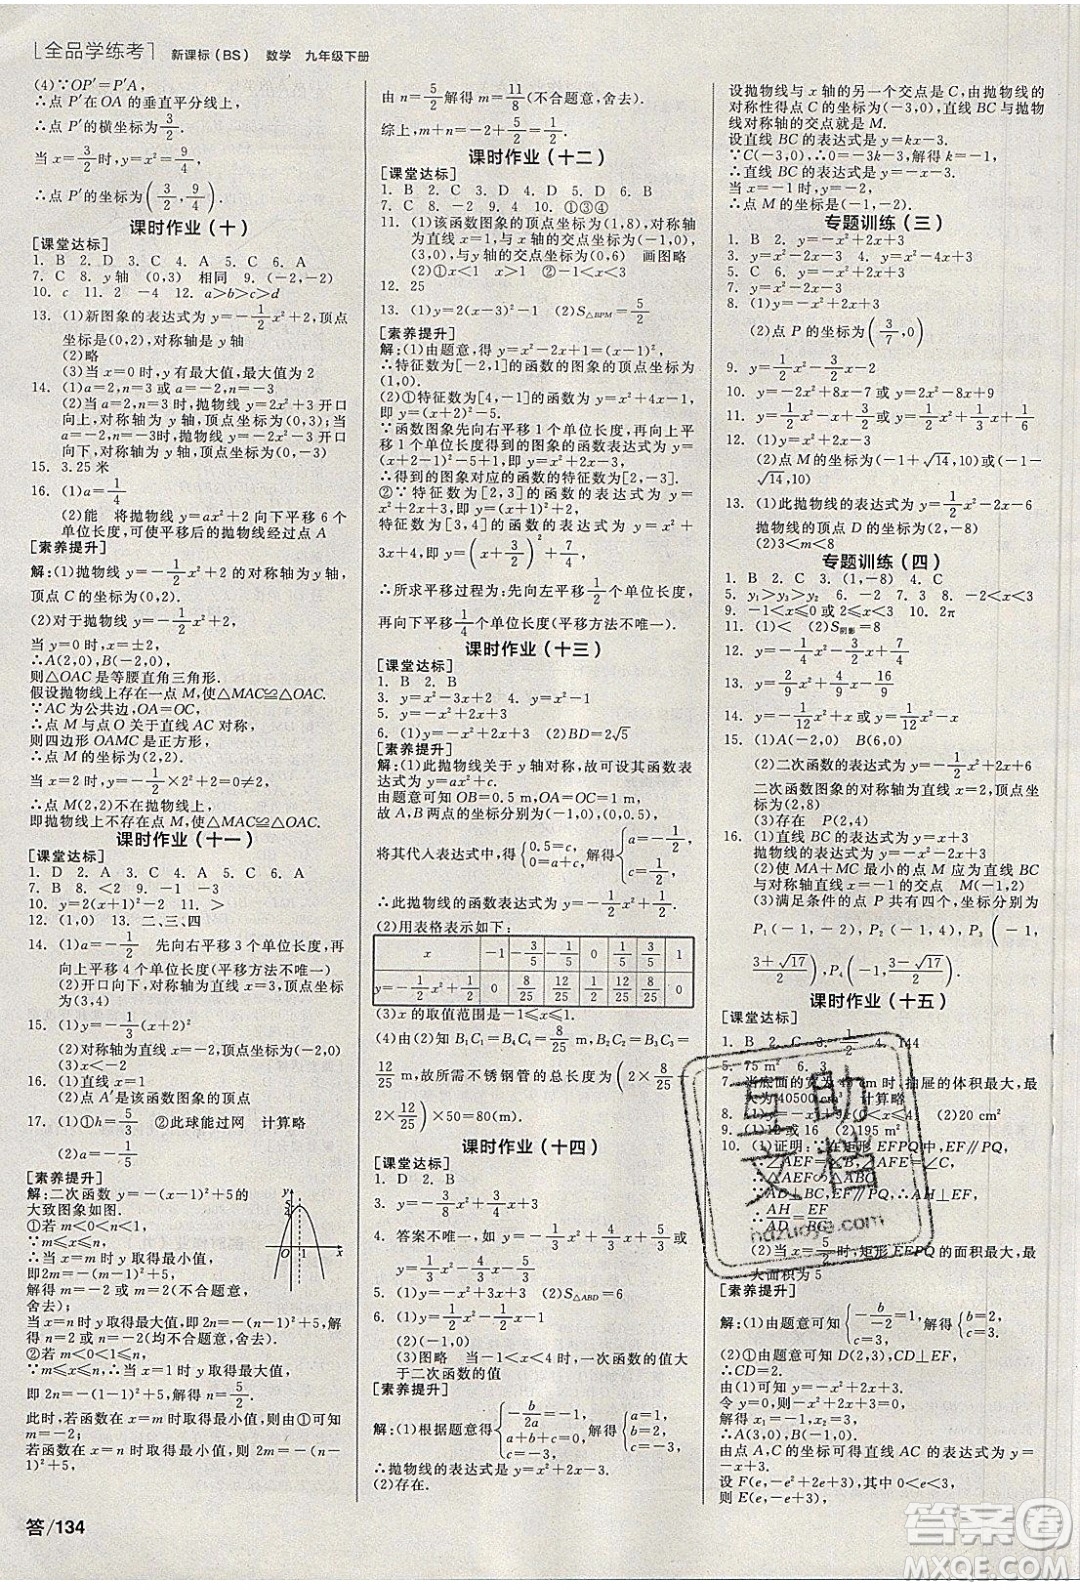 [全品学练考] 新课标(BS) 数学 九年级下册
(4)∵OP′=P′A,
∴点 P′在OA的垂直平分线上,
∴点 P′的横坐标为3/2.
当 x=3/2时,y=x²=9/4,
∴点 P′的坐标为(3/2,9/4).
课时作业(十)
[课堂达标]
1. B 2. D 3. C 4. A 5. C 6. A
7. C 8. y轴 (0,-2) 相同 9. (-2,-2)
10. c 11. 2 -4 12. a>b>d>c
13. (1)新图象的表达式为 y=-1/2x²+2,顶点
坐标是(0,2),对称轴是 y轴
(2)略
(3)当 x=0时,y有最大值,最大值为 2
14. (1)a=2,m=-3
(2)当 a=2,m=5时,抛物线 y=2x²+5 开口
向上,对称轴为 y轴,顶点坐标为(0,5);当
a=2,m=-3时,抛物线 y=-2x²-3 开口
向下,对称轴为 y轴,顶点坐标为(0,-3)
15. 3.25米
16. (1)a=1/4
(2)能 将抛物线 y=ax²+2向下平移6个
单位长度,可使平移后的抛物线经过点 A
[素养提升]
解:(1)抛物线 y=-1/2x²+2的对称轴为 x=0,
顶点 C的坐标为(0,2).
(2)对于抛物线 y=-1/2x²+2,
当 y=0时,-1/2x²+2=0,解得 x=±2,
∴A(2,0),B(-2,0).
∴△OAC是等腰直角三角形.
假设抛物线上存在一点 M,使△MAC≌△OAC.
∵AC为公共边,OA=OC,
∴点 M与点 O关于直线 AC对称,
则四边形 OAMC是正方形,
∴点 M的坐标为(2,2).
当 x=2时,y=-1/2×2²+2=0≠2,
∴点 M(2,2)不在抛物线上,
即抛物线上不存在点 M,使△MAC≌△OAC.
课时作业(十一)
[课堂达标]
1. D 2. A 3. C 4. A 5. C 6. A
7. B 8. <2 9. -2
10. y=2(x+1)²-2 11. >
12. (1,0) 13. 二、三、四
14. (1)a=-1/2 先向右平移3个单位长度,再
向上平移4个单位长度(平移方法不唯一)
(2)开口向下,对称轴为直线 x=3,顶点坐标
为(3,4)
15. (1)y=-1/3(x+2)²
(2)对称轴为直线 x=-2,顶点坐标为(-2,0)
(3)x<-2
16. (1)直线 x=1
(2)点 A′是该函数图象的顶点
17. (1)①h=5/3 ②此球能过网 计算略
(2)a=-1/5
[素养提升]
解:二次函数 y=-(x-1)²+5的
大致图象如图.
①若 m<0<n<1,
∵m≤x≤n,
∴当 x=m时 y取得最小值,
即2m=-(m-1)²+5,
解得 m=-2或 m=2(不合题意,
舍去);
当 x=n时 y取得最大值,
即2n=-(n-1)²+5,
解得 n=2或 n=-2(均不合题意,舍去).
②若 m<0<1≤n,
∵m≤x≤n,∴当 x=1时 y取得最大值,
即2n=-(1-1)²+5,解得 n=5/2.
此时,若函数在 x=m时取得最小值,则
m=-2;
若函数在 x=n时取得最小值,则2m=-(n-1)²
+5,
由 n=5/2解得 m=11/8(不合题意,舍去).
综上,m+n=-2+5/2=1/2.
课时作业(十二)
[课堂达标]
1. B 2. C 3. C 4. D 5. D 6. B
7. C 8. -2 9. 4 10. ①③④
11. (1)该函数图象的顶点坐标为(1,8),对称轴
为直线 x=1,与 x轴的交点坐标为(-1,0),
(3,0),与 y轴的交点坐标为(0,6) 画图略
(2)-1<x<3
12. 25
13. (1)y=2(x-3)²-1 (2)S△BPM=5/2
[素养提升]
解:(1)由题意,得 y=x²-2x+1=(x-1)²,
∴特征数为[-2,1]的函数的图象的顶点坐标为
(1,0).
(2)①特征数为[4,-1]的函数为 y=x²+4x-1,
即 y=(x+2)²-5.
∵函数图象先向右平移1个单位长度,再向上平
移1个单位长度得到的图象的函数表达式为 y=
(x+2-1)²-5+1,即 y=x²+2x-3,
∴得到的图象对应的函数的特征数为[2,-3].
②∵特征数为[2,3]的函数的表达式为 y=x²+
2x+3,即 y=(x+1)²+2,
特征数为[3,4]的函数的表达式为 y=x²+
3x+4,即 y=(x+3/2)²+7/4,
∴所求平移过程为:先向左平移1/2个单位长度,
再向下平移1/4个单位长度(平移方法不唯一).
课时作业(十三)
[课堂达标]
1. B 2. B
3. y=x²-3x+2 4. y=x²-x-2
5. y=-x²+2x+3
6. (1)y=-x²+2x+3 (2)BD=2√5
[素养提升]
解:(1)此抛物线关于 y轴对称,故可设其函数表
达式为 y=ax²+c.
由题意可知 OB=0.5 m,OA=OC=1 m,
故 A,B两点的坐标分别为(-1,0),(0,0.5),
将其代入表达式中,得{0.5=c, 0=a+c,解得{a=-1/2, c=1/2.
∴此抛物线的表达式为 y=-1/2x²+1/2.
(2)用表格表示如下:
x -1 -3/5 -1/5 0 1/5 3/5 1
y=-1/2x²+1/2 0 8/25 12/25 1/2 12/25 8/25 0
(3)x的取值范围是-1≤x≤1.
(4)由(2)可知 B₁C₁=B₄C₄=8/25 m,B₂C₂=B₃C₃=
12/25 m,故所需不锈钢管的总长度为(2×8/25+
2×12/25)×50=80(m).
课时作业(十四)
[课堂达标]
1. D 2. B
3. y=-3/8x²+3/4x+3
4. 答案不唯一,如 y=1/3x²-2/3x+1/3或 y=
-1/3x²+4/3x-1
5. (1)y=-x²+3x+3 (2)S△ABD=6
6. (1)y=1/2x²-1/2x-1
(2)(-1,0)
(3)图略 当-1<x<4时,一次函数的值大
于二次函数的值
[素养提升]
解:(1)根据题意得{-b/2a=1, a-b+c=0, c=-3,解得{a=1, b=-2, c=-3,
∴抛物线的表达式为 y=x²-2x-3.
(2)存在.
设抛物线与 x轴的另一个交点是 C,由抛物线的
对称性得点 C的坐标为(-3,0),直线 BC与抛物
线对称轴的交点就是 M.
设直线 BC的表达式是 y=kx-3.
∵C(-3,0),∴0=-3k-3,解得 k=-1,
∴直线 BC的表达式是 y=-x-3.
当 x=-1时,y=-2,
∴点 M的坐标为(-1,-2).
专题训练(三)
1. B 2. y=-x²+2x+3
3. y=-x²-2x+3 4. y=-x²+2x+3
5. C 6. y=-x²+2x+3
7. y=-x²-2x
8. (1)y=x²-2x+3
(2)点 P的坐标为(3/7,0)
9. y=1/2x²-3/2x-2
10. y=x²-4x+3或 y=x²-8x+9
11. y=1/2x²+1/2x或 y=-1/6x²+1/6x
12. (1)y=x²-4
(2)点 P的坐标为(-1+√14,10)或(-1-
√14,10)
13. (1)此抛物线的表达式为 y=1/2x²-2x-6
抛物线的顶点 D的坐标为(2,-8)
(2)3<m<8
专题训练(四)
1. B 2. C 3. (1,-8) 4. C
5. y₁>y₃>y₂ 6. -2 7. 3 8. -2<x<3
9. -1<x≤0或2≤x<3 10. 2π
11. (1)< (2)S阴影=8
12. y=-1/2x²-x+3/2
13. y=2/9x²+4/9x-16/9
14. y=-1/12x²+x或 y=1/12x²-x
15. (1)A(-2,0) B(6,0)
(2)二次函数的表达式为 y=-1/2x²+2x+6
二次函数图象的对称轴为直线 x=2,顶点坐
标为(2,8)
(3)存在 P(2,4)
16. (1)直线 BC的表达式为 y=x+3
抛物线的表达式为 y=-x²-2x+3
(2)使 MA+MC最小的点 M为直线 BC与
对称轴直线 x=-1的交点 M(-1,2)
(3)满足条件的点 P共有四个,坐标分别为
P₁(-1,-2),P₂(-1,4),P₃(-1,
(3+√17)/2),P₄(-1,(3-√17)/2)
课时作业(十五)
[课堂达标]
1. B 2. C 3. 1/2 4. 144
5. 75 m² 6.
7. 当底面的宽为45 cm时,抽屉的体积最大,最
大为40500 cm³ 计算略
8. (1) (2)20 cm²
9. (1)12或16 (2)195 m²
10. (1)证明:∵在矩形 EFPQ中,EF∥PQ,
∴∠AEF=∠B,∠AFE=∠C,
∴△AEF∽△ABC.
∵AD⊥BC,EF∥BC,∴AH⊥EF,
∴AH/AD=EF/BC
(2)当 x=5/2时,矩形 EFPQ的面积最大,最
大面积为5
[素养提升]
解:(1)由题意可知{-b/-2=1, c=3,解得{b=2, c=3.
(2)①由题意可知 D(2,3),
∴CD=2.
由(1)可知 y=-x²+2x+3,
令 y=0,则-x²+2x+3=0,
解得 x₁=-1,x₂=3,
∴A(3,0),B(-1,0).
由点 A,C的坐标可得直线 AC的表达式为 y=
-x+3.
设 F(e,-e²+2e+3),其中0<e<3,
则 E(e,-e+3),
答/134
互助文档
hdzuoye.com
答案圈
MXQE.COM